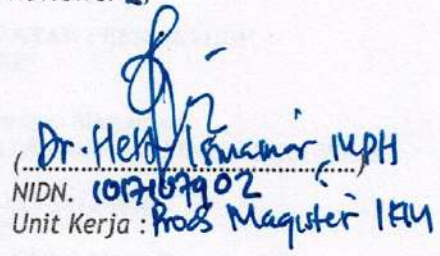 (Dr. Hetty Ismainar, MPH)
NIDN. 1017107902
Unit Kerja : Prodi Magister IKM